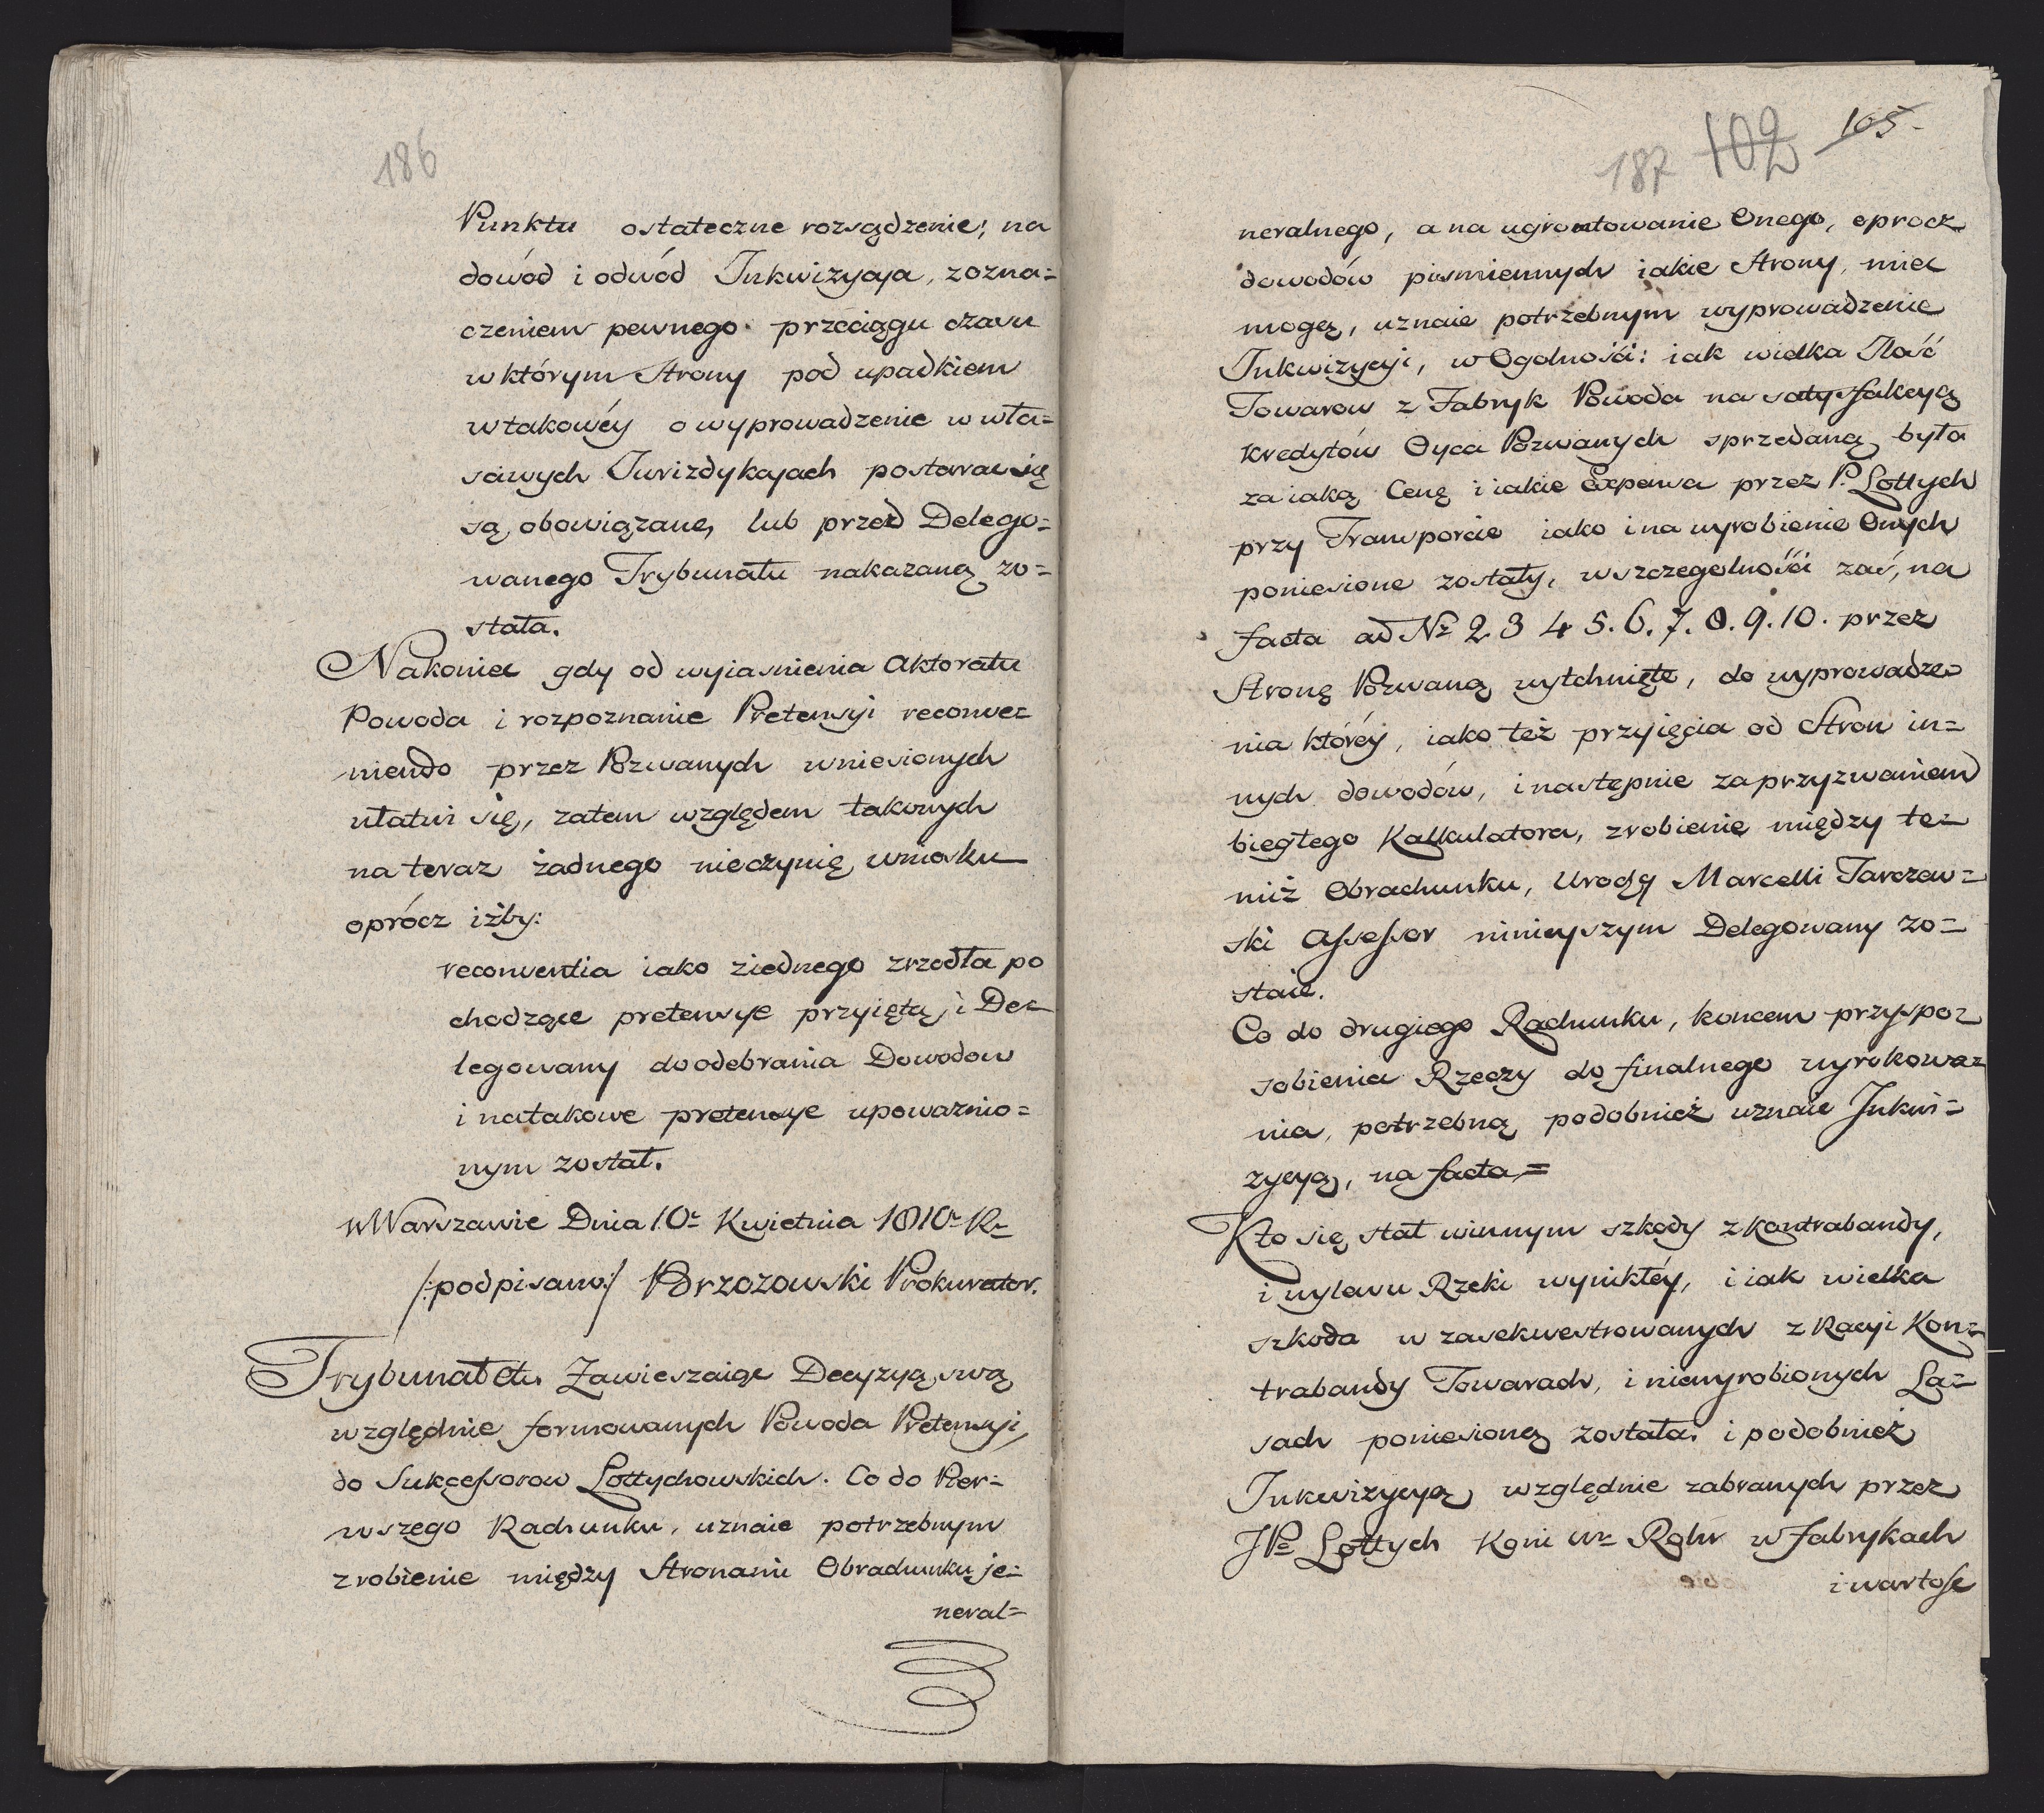 186
Punktu ostateczne rozsądzenie; na
dowód i odwód Inkwizycya, z ozna=
czeniem pewnego przeciągu czasu
w którym Strony pod upadkiem
w takowéy o wyprowadzenie w wła=
sciwych Jurizdykcyach postarać się
są obowiązane, lub przed Delego=
wanego Trybunału nakazaną zo=
stała.
Nakoniec gdy od wyiasnienia Aktoratu
Powoda i rozpoznanie Pretensyi reconve=
niendo przez Pozwanych wniesionych
ułatwi się, zatem względem takowych
na teraz żadnego nieczynię wniosku
oprócz iżby:
reconventia iako z iednego zrzodła po
chodzące pretensye przyiętą, i De=
legowany do odebrania Dowodow
i na takowe pretensye upowaznio=
nym został.
w Warszawie Dnia 10º Kwietnia 1810º Rº
/:podpisano:/ Brzozowski Prokurator.
Trybunał etc. Zawieszaiąc Decyzyą swą
względnie formowanych Powoda Pretensyi,
do Sukcessorow Lottychowskich. Co do Pier=
wszego Rachunku, uznaie potrzebnym
zrobienie między Stronami Obrachunku je=
neral=
187 102 105
neralnego, a na ugruntowanie Onego, oprocz
dowodów pismiennych iakie Strony mieć
mogą, uznaie potrzebnym wyprowadzenie
Inkwizycyi, w Ogolności: iak wielka Ilość
Towarow z Fabryk Powoda na satysfakcyą
Kredytów Oyca Pozwanych sprzedaną była
za iaką Cenę i iakie Expensa przez P. Lottych
przy Transporcie iako i na wyrobienie Onych
poniesione zostały, w szczegolności zaś, na
facta ad Nº 2 3 4 5. 6. 7. 8. 9. 10. przez
Stronę Pozwaną wytchnięte, do wyprowadze=
nia któréy, iako też przyięcia od Stron in=
nych dowodów, i następnie za przyzwaniem
biegłego Kalkulatora, zrobienie między te=
miż Obrachunku, Urodzy Marcelli Tarczew=
ski Assessor ninieyszym Delegowany zo=
staie.
Co do drugiego Rachunku, koncem przyspo=
sobienia Rzeczy do finalnego wyrokowa=
nia, potrzebną podobnież uznaie Inkwi=
zycyą, na facta =
Kto się stał winnym szkody z Kontrabandy,
i wylewu Rzeki wynikłéy, i iak wielka
szkoda w zasekwestrowanych z Racyi Kon=
trabandy Towarach, i niewyrobionych La=
sach poniesioną została. i podobnież
Inkwizycyą względnie zabranych przez
JPº Lottych Koni Wº Rohr w Fabrykach
i wartosc